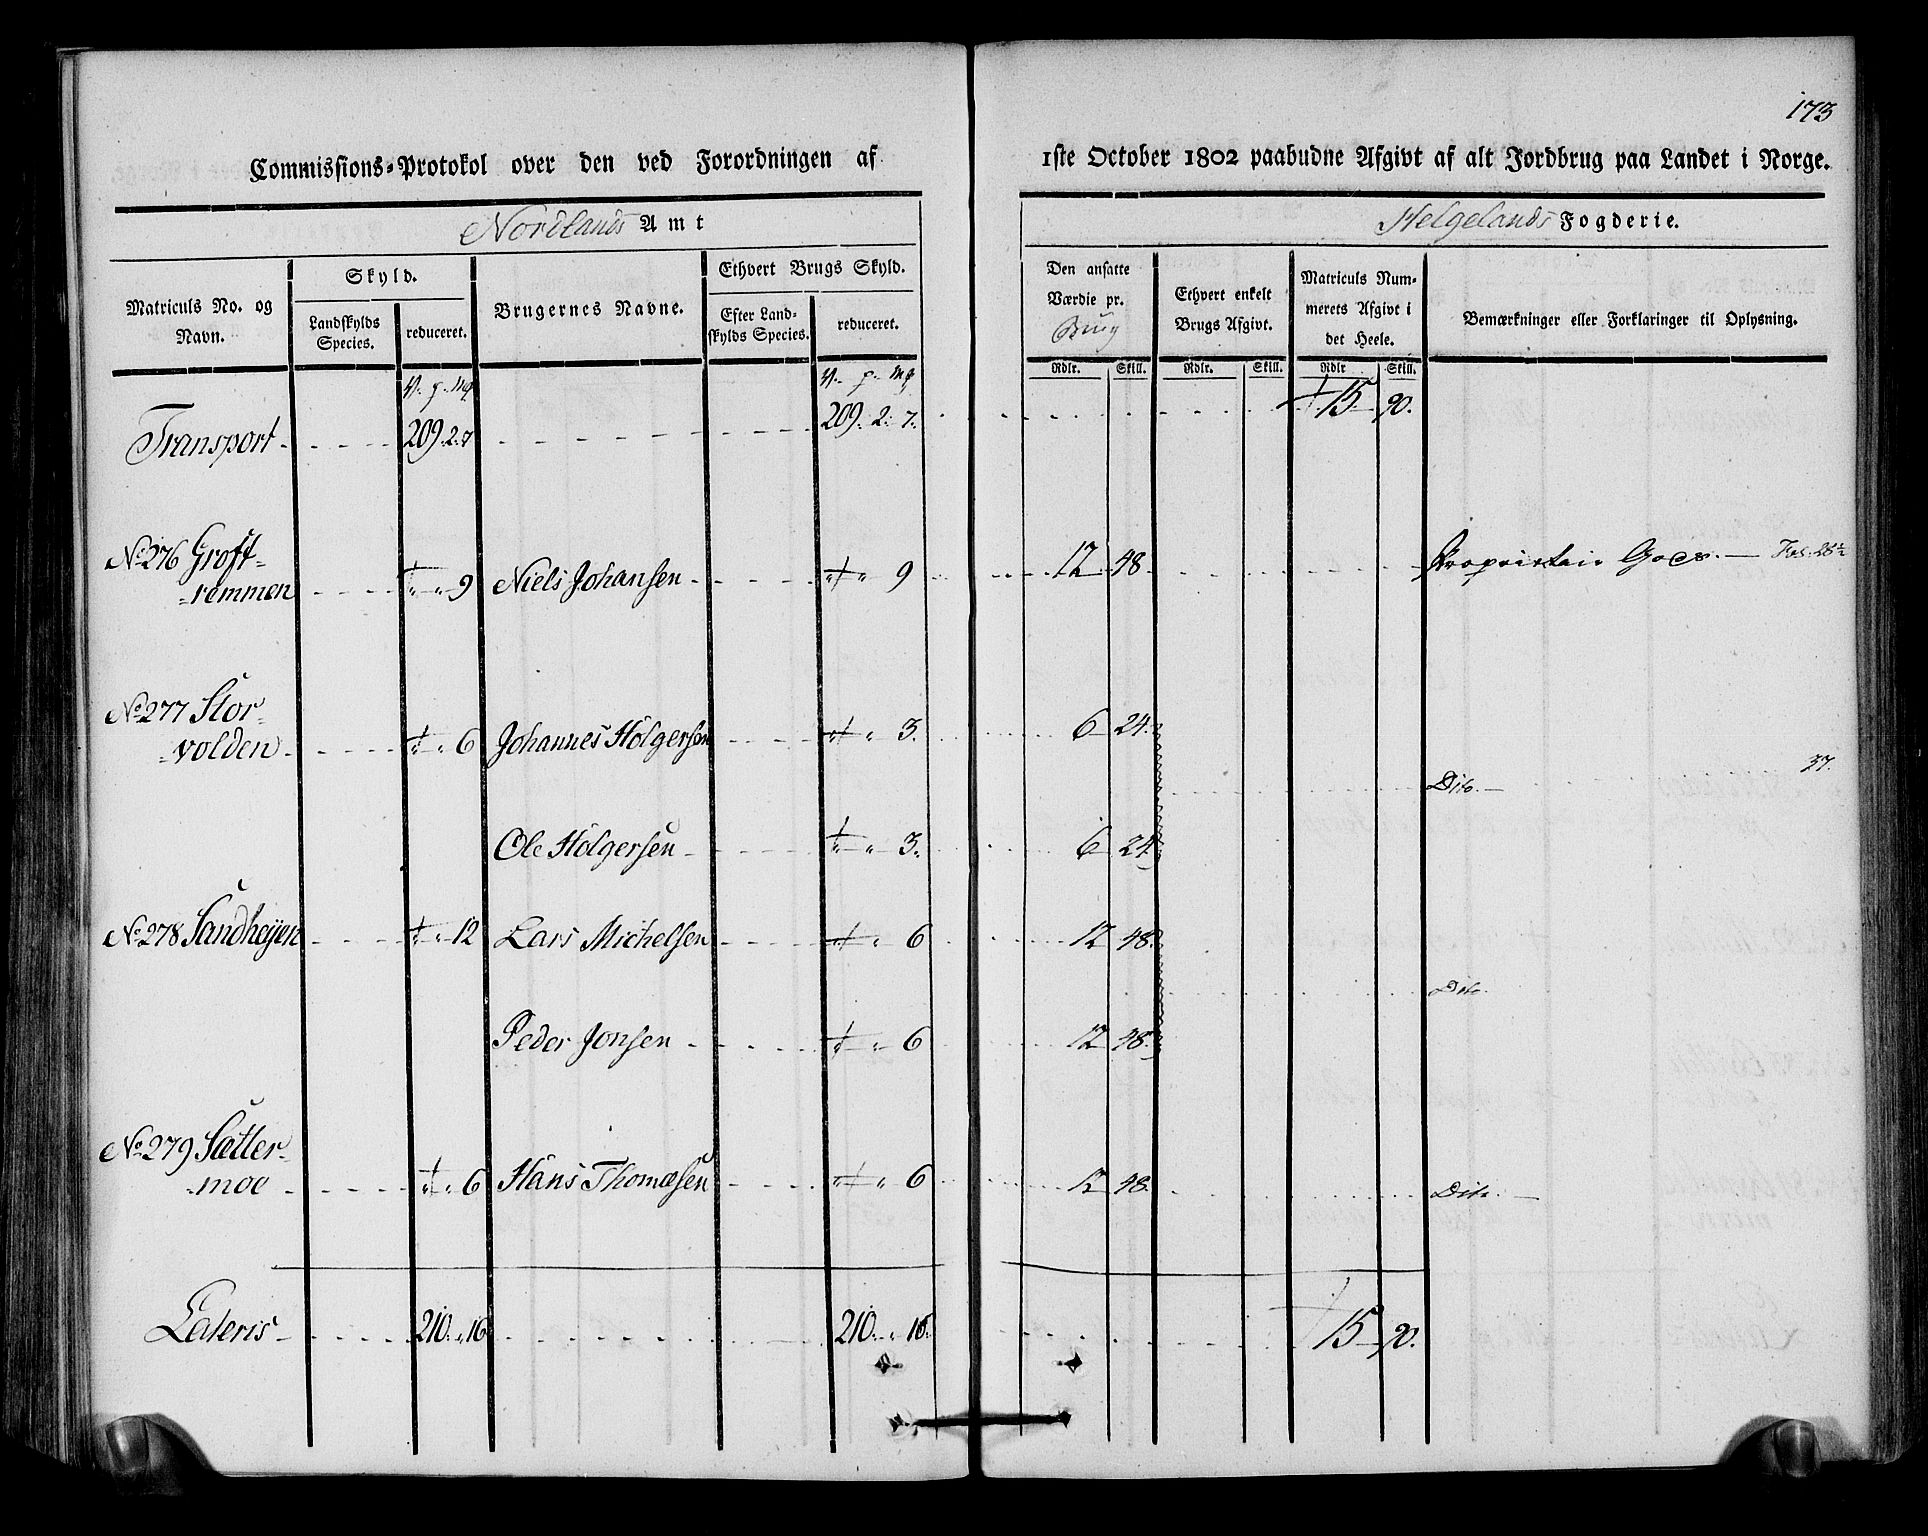 173
Commissions-Protokol over den ved Forordningen af 1ste October 1802 paabudne Afgivt af alt Jordbrug paa Landet i Norge.
Nordlands Amt Helgelands Fogderie.
Matriculs No. og Navn. Skyld. Landskylds Species. reduceret. Brugernes Navne. Ethvert Brugs Skyld. Efter Landskylds Species. reduceret. Den ansatte Værdie pr. Brug Ethvert enkelt Brugs Afgivt. Matriculs Nummerets Afgivt i det Heele. Bemærkninger eller Forklaringer til Oplysning.
V. p. mg V. p. mg Rdlr. Skill. Rdlr. Skill. Rdlr Skill.
Transport 209. 2. 7 209. 2. 7. 15 90.
No 276 Groft-
=remmen 9 Niels Johansen 9 12 48 Proprietair Gods.
No 277 Stor-
=volden 6 Johannes Holgersen 3. 6 24.
Dito. 37.
Ole Holgersen 3. 6 24
No 278 Sandhøjen 12 Lars Michelsen 6 12 48.
Dito.
Peder Jonsen 6 12 48.
No 279 Sætter-
=moe 6 Hans Thomæsen 6 12 48. Dito.
Lateris 210. " 16 210. " 16. 15 90.